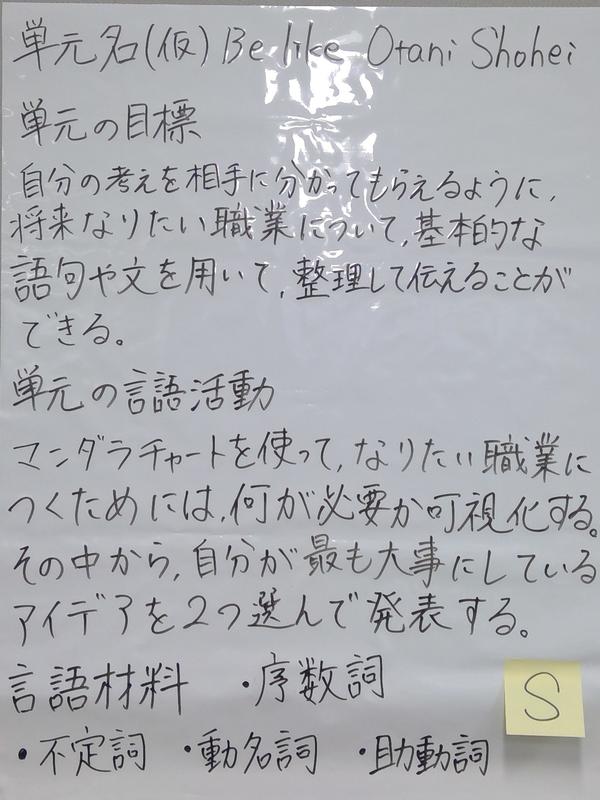 単元名(仮) Be like Otani Shohei
単元の目標
自分の考えを相手に分かってもらえるように、
将来なりたい職業について、基本的な
語句や文を用いて、整理して伝えることが
できる。
単元の言語活動
マンダラチャートを使って、なりたい職業に
つくためには、何が必要か可視化する。
その中から、自分が最も大事にしている
アイデアを2つ選んで発表する。
言語材料 ・序数詞
・不定詞 ・動名詞 ・助動詞
S